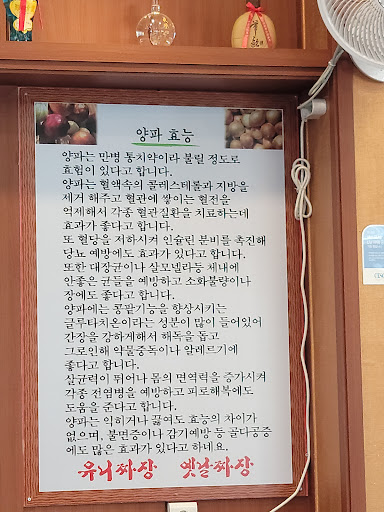 양파 효능
양파는 만병 통치약이라 불릴 정도로
효험이 있다고 합니다.
양파는 혈액속의 콜레스테롤과 지방을
제거 해주고 혈관에 쌓이는 혈전을
억제해서 각종 혈관질환을 치료하는데
효과가 좋다고 합니다.
또 혈당을 저하시켜 인슐린 분비를 촉진해
당뇨 예방에도 효과가 있다고 합니다.
또한 대장균이나 살모넬라등 체내에
안좋은 균들을 예방하고 소화불량이나
장에도 좋다고 합니다.
양파에는 콩팥기능을 향상시키는
글루타치온이라는 성분이 많이 들어있어
간장을 강하게해서 해독을 돕고
그로인해 약물중독이나 알레르기에
좋다고 합니다.
살균력이 뛰어나 몸의 면역력을 증가시켜
각종 전염병을 예방하고 피로해복에도
도움을 준다고 합니다.
양파는 익히거나 끓여도 효능의 차이가
없으며, 불면증이나 감기예방 등 골다공증
에도 많은 효과가 있다고 하네요.
유니짜장 옛날짜장